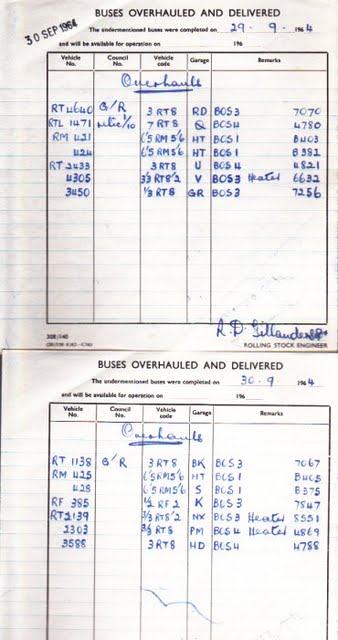 BUSES OVERHAULED AND DELIVERED
30 SEP 1964
The undermentioned buses were completed on 29 - 9 - 1964
and will be available for operation on 196
Vehicle No. Council No. Vehicle code Garage Remarks
Overhauls
RT 4640 G/R 3 RT8 RD BOS3 7070
RTL 1471 7 RT8 Q BOS4 4780
RM 421 6'5 RM5'6 HT BOS1 B403
424 6'5 RM5'6 HT BOS1 B382
RT 2433 3 RT8 U BOS4 4821
4305 3/3 RT8'2 V BOS3 Heated 6632
3450 1/3 RT8 GR BOS3 7256
R.D. Gillanders
ROLLING STOCK ENGINEER
BUSES OVERHAULED AND DELIVERED
The undermentioned buses were completed on 30 - 9 1964
and will be available for operation on 196
Vehicle No. Council No. Vehicle code Garage Remarks
Overhauls
RT 1138 G/R 3 RT8 BK BOS3 7067
RM 425 6'5 RM5'6 HT BOS1 B405
428 6'5 RM5'6 S BOS1 B375
RF 385 1/2 RF 2 K BUS3 7847
RT 2139 3/3 RT8'2 NX BOS3 Heated 8551
2303 3/3 RT8 PM BOS4 Heated 4869
3588 3 RT8 HD BOS4 4788